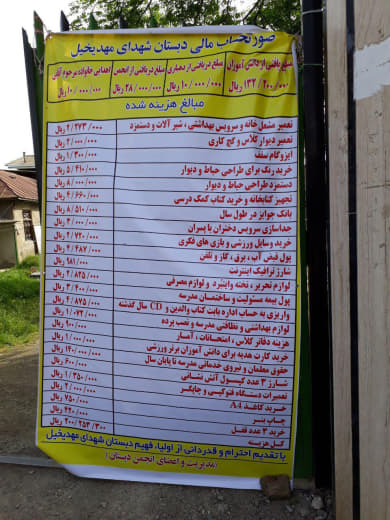 صورتحساب مالی دبستان شهدای مهدیخیل
مبلغ دریافتی از دانش آموزان
مبلغ دریافتی از دهیاری
مبلغ دریافتی از انجمن
اهدایی خانواده مرحوم
۱۳۲/۲۰۰/۰۰۰ ریال
۱۰/۰۰۰/۰۰۰ ریال
۲۸/۰۰۰/۰۰۰ ریال
۱۰/۰۰۰/۰۰۰ ریال
مبالغ هزینه شده
تعمیر مشعل خانه و سرویس بهداشتی، شیر آلات و دستمزد ۲/۲۷۳/۰۰۰ ریال
تعمیر دیوار کلاس و گچ کاری ۲/۰۰۰/۰۰۰ ریال
ایزوگام سقف ۱/۳۰۰/۰۰۰ ریال
خرید رنگ برای طراحی حیاط و دیوار ۵/۴۱۰/۰۰۰ ریال
دستمزد طراحی حیاط و دیوار ۸/۰۰۰/۰۰۰ ریال
تجهیز کتابخانه و خرید کتاب کمک درسی ۴/۶۶۰/۰۰۰ ریال
بانک جوایز در طول سال ۸/۵۱۰/۰۰۰ ریال
جداسازی سرویس دختران با پسران ۳/۰۰۰/۰۰۰ ریال
خرید وسایل ورزشی و بازی های فکری ۲/۷۲۰/۰۰۰ ریال
پول قبض آب، برق، گاز و تلفن ۴/۶۸۷/۰۰۰ ریال
شارژ ترافیک اینترنت ۹۸۱/۰۰۰ ریال
لوازم تحریر، تخته وایتبرد و لوازم مصرفی ۲/۸۲۵/۰۰۰ ریال
پول بیمه مسئولیت و ساختمان مدرسه ۳/۴۰۰/۰۰۰ ریال
واریزی به حساب اداره بابت کتاب والدین و CD سال گذشته ۴/۸۷۵/۰۰۰ ریال
لوازم بهداشتی و نظافتی مدرسه و نصب پرده ۱/۰۷۲/۰۰۰ ریال
هزینه دفاتر کلاس، امتحانات، آمار ۹۰۰/۰۰۰ ریال
خرید کارت هدیه برای دانش آموزان برتر ورزشی ۱/۰۰۰/۰۰۰ ریال
حقوق معلمان و نیروی خدماتی مدرسه تا پایان سال ۱۴۰/۰۰۰/۰۰۰ ریال
شارژ ۳ عدد کپسول آتش نشانی ۶۰۰/۰۰۰ ریال
تعمیرات دستگاه فتوکپی و چاپگر ۱/۳۵۰/۰۰۰ ریال
خرید کاغذ A4 ۲/۰۰۰/۰۰۰ ریال
چاپ بنر ۷۵۰/۰۰۰ ریال
خرید ۳ عدد قفل ۴۴۰/۰۰۰ ریال
کل هزینه ۲۰۰/۲۵۳/۳۰۰ ریال
با تقدیم احترام و قدردانی از اولیاء فهیم دبستان شهدای مهدیخیل
(مدیریت و اعضای انجمن دبستان)